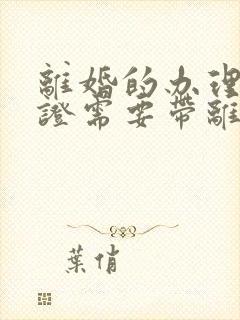 離婚的办理
證需要帶離
葉俏